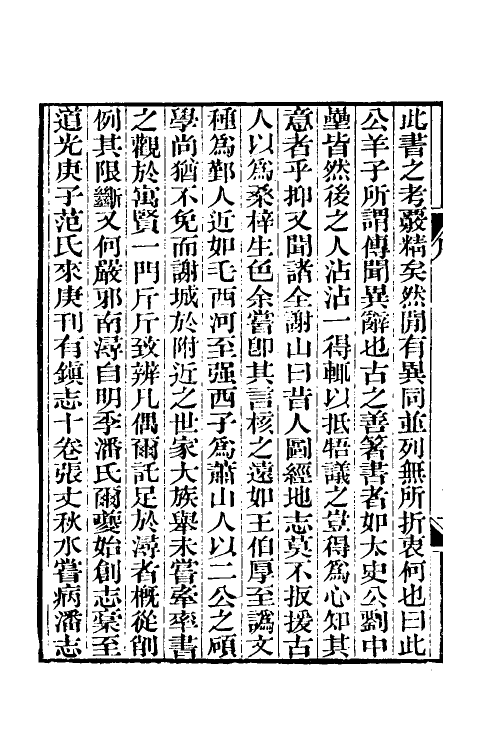 此書之考覈精矣然閒有異同並列無所折衷何也曰此
公羊子所謂傳聞異辭也古之善著書者如太史公劉中
壘皆然後之人沾沾一得輒以抵牾議之豈得為心知其
意者乎抑又聞諸全謝山曰昔人圖經地志莫不扳援古
人以為桑梓生色余嘗卽其言核之遠如王伯厚至譌文
種為鄞人近如毛西河至强西子為蕭山人以二公之碩
學尚猶不免而謝城於附近之世家大族舉未嘗牽率書
之觀於寓賢一門斤斤致辨凡偶爾託足於潯者槪從削
例其限斷又何嚴邪南潯自明季潘氏爾夔始創志稾至
道光庚子范氏來庚刊有鎮志十卷張丈秋水嘗病潘志